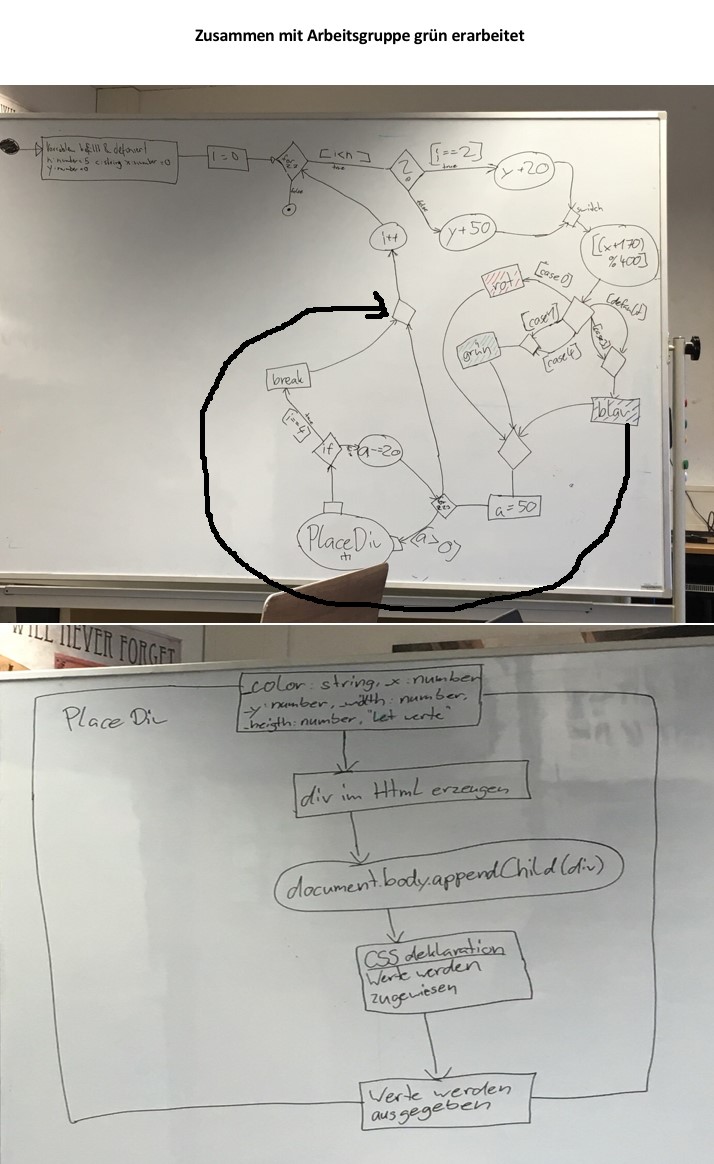 Zusammen mit Arbeitsgruppe grün erarbeitet
n:number=5 c:string x:number=0
y:number=0
I=0
[i<n]
true
false
[i==2]
true
false
y+20
y+50
switch
[(x+170)
%400]
I++
rot
[case0]
[default]
[case1]
[case4]
grün
blau
break
[i==4]
true
if
a-=20
a=50
[a>0]
PlaceDiv
WILL NEVER FORGET
Place Div
color: string, x:number
y:number, width: number,
heigth:number, "Let werte"
div im Html erzeugen
document.body.appendChild(div)
CSS deklaration
Werte werden
zugewiesen
Werte werden
ausgegeben